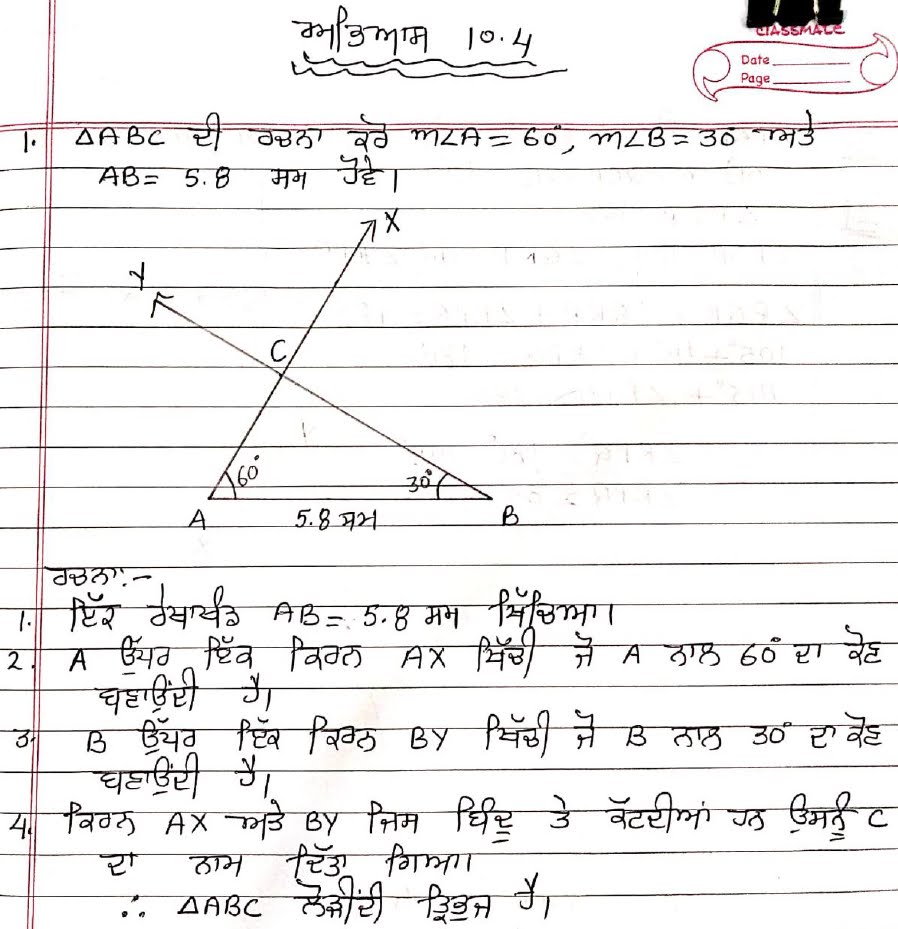 ਅਭਿਆਸ 10.4
CLASSMATE
Date
Page
1. △ABC ਦੀ ਰਚਨਾ ਕਰੋ m∠A = 60°, m∠B = 30° ਅਤੇ
AB = 5.8 ਸਮ ਹੋਵੇ।
X
Y
C
60°
30°
A
5.8 ਸਮ
B
ਰਚਨਾ:-
1. ਇੱਕ ਰੇਖਾਖੰਡ AB = 5.8 ਸਮ ਖਿੱਚਿਆ।
2. A ਉੱਪਰ ਇੱਕ ਕਿਰਨ AX ਖਿੱਚੀ ਜੋ A ਨਾਲ 60° ਦਾ ਕੋਣ
ਬਣਾਉਂਦੀ ਹੈ।
3. B ਉੱਪਰ ਇੱਕ ਕਿਰਨ BY ਖਿੱਚੀ ਜੋ B ਨਾਲ 30° ਦਾ ਕੋਣ
ਬਣਾਉਂਦੀ ਹੈ।
4. ਕਿਰਨ AX ਅਤੇ BY ਜਿਸ ਬਿੰਦੂ ਤੇ ਕੱਟਦੀਆਂ ਹਨ ਉਸਨੂੰ C
ਦਾ ਨਾਮ ਦਿੱਤਾ ਗਿਆ।
∴ △ABC ਲੋੜੀਂਦੀ ਤ੍ਰਿਭੁਜ ਹੈ।